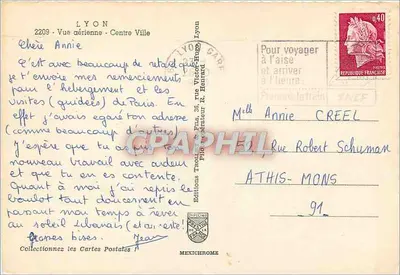 LYON
2209 - Vue aérienne - Centre Ville
Chère Annie
C'est avec beaucoup de retard que
je t'envoie mes remerciements
pour l'hébergement et les
visites (guidées) de Paris. En
effet j'avais égaré ton adresse
(comme beaucoup d'autres)
J'espère que tu as
nouveau travail avec ardeur
et que tu en es contente.
Quant à moi j'ai repris le
boulot tout doucement en
passant mon temps à rêver
au soleil libanais (et au reste!
Grosses bises. Jean
Collectionnez les Cartes Postales
MEXICHROME
LYON GARE
Pour voyager
à l'aise
et arriver
à l'heure
SNCF
0,40
REPUBLIQUE FRANÇAISE
Melle Annie CREEL
Rue Robert Schuman
ATHIS-MONS
91
CPHPHIL.COM